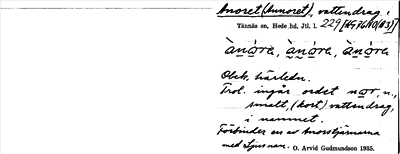 Anoret (Annoret), vattendrag i
Tännäs sn, Hede hd, Jtl. l. 229
Obek. härledn.
Trol. ingår ordet nor, n.,
smalt, (kort) vattendrag,
i namnet.
Förbinder en av Anorstjärnarna
med Ljusnan. O. Arvid Gudmundson 1935.